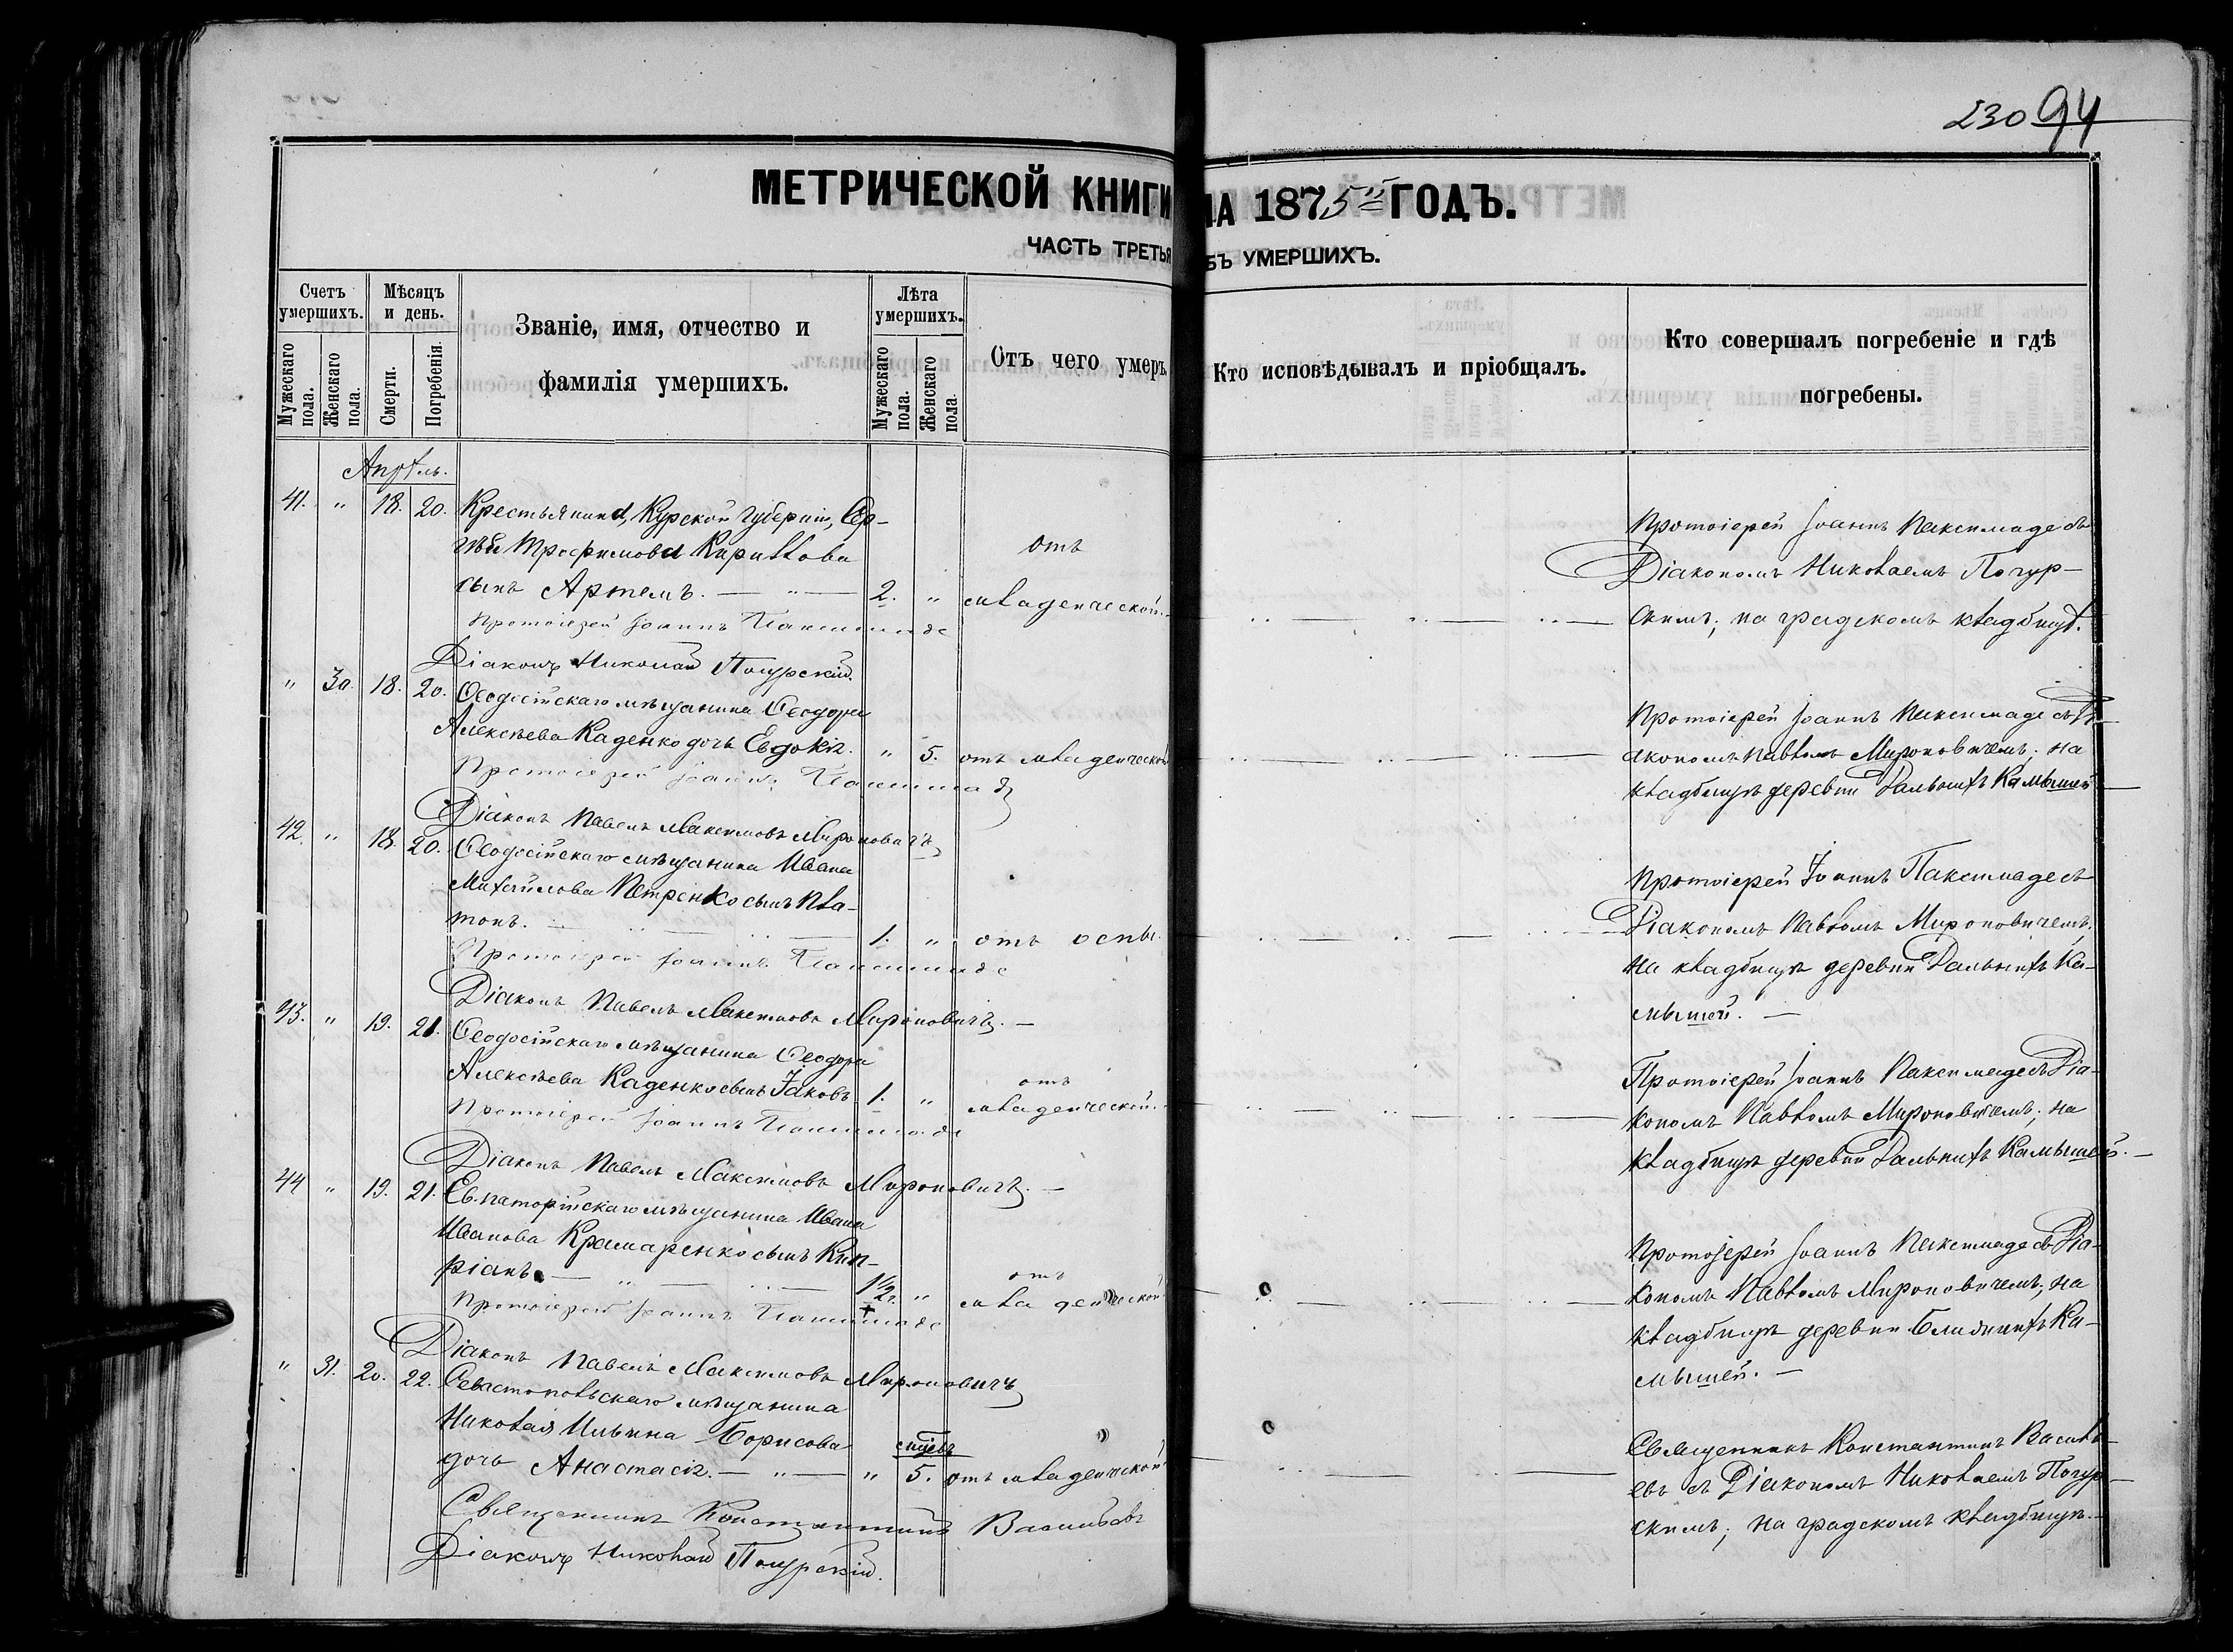 230 94
МЕТРИЧЕСКОЙ КНИГИ НА 1875й ГОДЪ.
ЧАСТЬ ТРЕТЬЯ ОБЪ УМЕРШИХЪ.
Счетъ умершихъ.
Мужескаго пола.
Женскаго пола.
Мѣсяцъ и день.
Смерти.
Погребенія.
Званіе, имя, отчество и
фамилія умершихъ.
Лѣта умершихъ.
Мужескаго пола.
Женскаго пола.
Отъ чего умеръ.
Кто исповѣдывалъ и пріобщалъ.
Кто совершалъ погребеніе и гдѣ
погребены.
Апрѣль.
41. " 18. 20. Крестьянина, Курской губерніи, Сер-
гѣя Трофимова Кириллова
сынъ Артемъ. — " — 2. " отъ младенческой.
Протоіерей Іоаннъ Паксимаде съ
Діакономъ Николаемъ Погур-
скимъ; на градскомъ кладбищѣ.
Протоіерей Іоаннъ Паксимаде
Діаконъ Николай Погурскій.
" 30. 18. 20. Ѳеодосійскаго мѣщанина Ѳеодора
Алексѣева Каденко дочь Евдокія. " 5. отъ младенческой
Протоіерей Іоаннъ Паксимаде съ Ді-
акономъ Павломъ Мироновичемъ; на
кладбищѣ деревни Дальнихъ Камышей
Протоіерей Іоаннъ Паксимаде
Діаконъ Павелъ Максимовъ Мироновичъ
42. " 18. 20. Ѳеодосійскаго мѣщанина Ивана
Михайлова Петренко сынъ Пла-
тонъ. — " — 1. " отъ оспы.
Протоіерей Іоаннъ Паксимаде съ
Діакономъ Павломъ Мироновичемъ;
на кладбищѣ деревни Дальнихъ Ка-
мышей. —
Протоіерей Іоаннъ Паксимаде
Діаконъ Павелъ Максимовъ Мироновичъ. —
43. " 19. 21. Ѳеодосійскаго мѣщанина Ѳеодора
Алексѣева Каденко сынъ Іаковъ 1. " отъ младенческой.
Протоіерей Іоаннъ Паксимаде съ Діа-
кономъ Павломъ Мироновичемъ; на
кладбищѣ деревни Дальнихъ Камышей. —
Протоіерей Іоаннъ Паксимаде
Діаконъ Павелъ Максимовъ Мироновичъ. —
44 " 19. 21. Евпаторійскаго мѣщанина Ивана
Иванова Крамаренко сынъ Кип-
ріанъ. — " — 1 1/2 г. " отъ младенческой
Протоіерей Іоаннъ Паксимаде съ Діа-
кономъ Павломъ Мироновичемъ; на
кладбищѣ деревни Ближнихъ Ка-
мышей. —
Протоіерей Іоаннъ Паксимаде
Діаконъ Павелъ Максимовъ Мироновичъ
" 31. 20. 22. Севастопольскаго мѣщанина
Николая Ильина Борисова
дочь Анастасія. — " — " 5. отъ младенческой
Священникъ Константинъ Василь-
евъ съ Діакономъ Николаемъ Погур-
скимъ; на градскомъ кладбищѣ.
Священникъ Константинъ Васильевъ
Діаконъ Николай Погурскій.